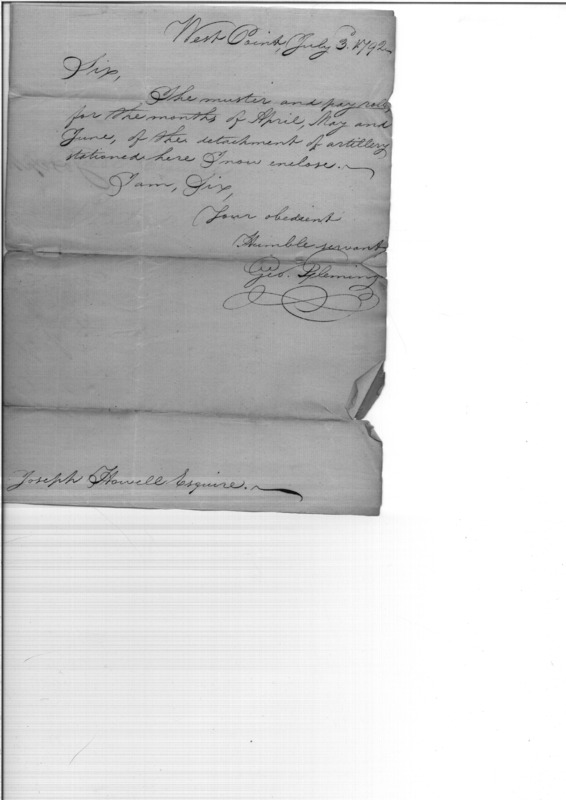 West Point, July 3d. 1792.
Sir,
The muster and pay rolls
for the months of April, May and
June, of the detachment of artillery
stationed here I now enclose.
I am, Sir,
Your obedient
Humble servant
Geo. Fleming
Joseph Howell Esquire.